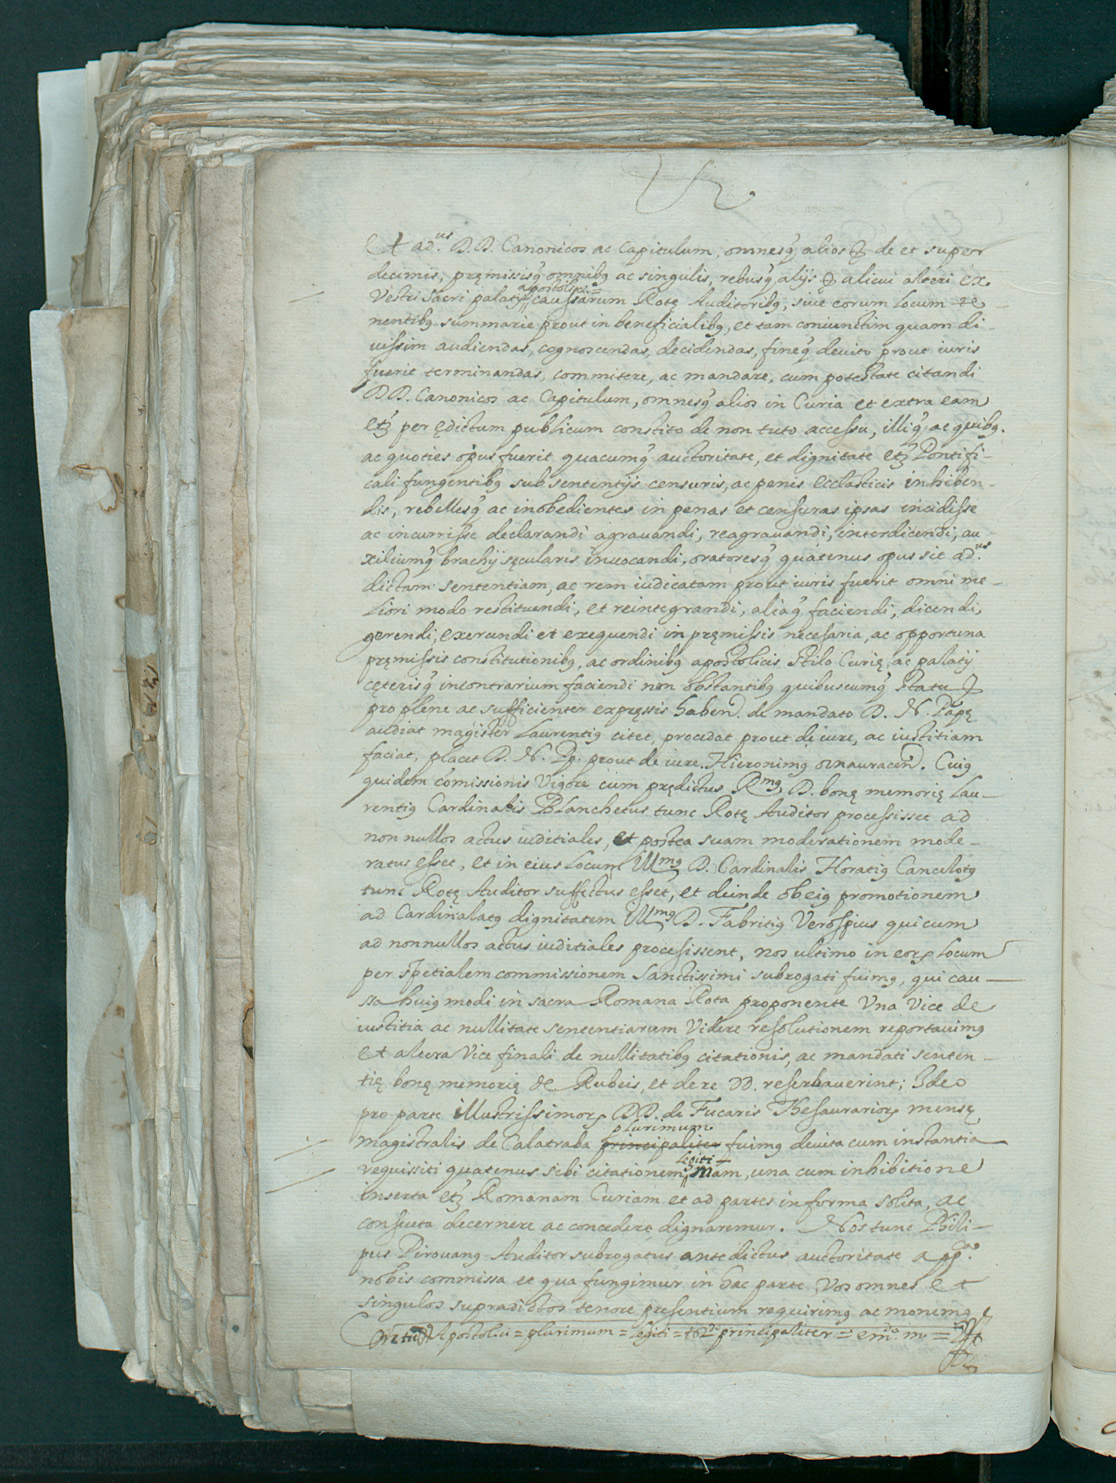 Et ad.us D.D. Canonicos ac Capitulum, omnesq alios & de et super
decimis, pręmissisq omnibq ac singulis, rebusq alijs & alicui alteri ex
Vestri Sacri palatij apostolici causarum Rotę Auditoribq, siue eorum Locum te
nentibq summarie prout in beneficialibq, et tam coniunctim quam di-
uissim audiendas, cognoscendas, decidendas, fineq devito prout iuris
fuerit terminandas, commitere, ac mandare, cum potestate citandi
DD. Canonicos ac Capitulum, omnesq alios in Curia et extra eam
et per ędictum publicum constito de non tuto accessu, illiq ac quibq.
ac quoties opus fuerit quacumq auctoritate, et dignitate et Pontifi-
cali fungentibq sub sententijs censuris, ac penis Ecclasticis inhiben-
dis, rebellesq ac inobedientes in penas et censuras ipsas incidisse
ac incurrisse declarandi agrauandi, reagrauandi, interdicendi, au-
xiliumq brachij sęcularis inuocandi, oratoresq quatenus opus sit ad.us
dictam sententiam, ac rem iudicatam prout iuris fuerit omni me-
Liori modo restituendi, et reintegrandi, aliaq faciendi, dicendi,
gerendi, exercendi et exequendi in pręmissis necesaria, ac opportuna
pręmissis constitutionibq, ac ordinibq apostolicis Stilo Curię, ac palatij
cęterisq incontrarium faciendi non obstantibq quibuscumq Statu &
pro plene ac sufficienter expręssis haben.d de mandato D. N. Papę
audiat magister Laurentiq citet, procedat prout de iure, ac iustitiam
faciat, placet D. N. Pp. prout de iure. Hieronimq
quidem comissionis Vigore cum prędictus Rmq D. bonę memorię Lau-
rentiq Cardinalis Blanchetus tunc Rotę Auditor processisset ad
non nullos actus iuditiales, et postea suam moderationem mode-
ratus esset, et in eius Locum Illmq D. Cardinalis Horatiq Cancelotq
tunc Rotę Auditor suffectus esset, et deinde ob eiq promotionem
ad Cardinalatq dignitatem Illmq D. Fabritiq Verospius qui cum
ad nonnullos actus iuditiales processissent, nos ultimo in eor Locum
per spetialem commissionem Sanctissimi subrogati fuimq, qui cau-
sa huiqmodi in sacra Romana Rota proponente Una Vice de
iustitia ac nullitate sententiarum Videre resolutionem reportauimq
et altera Vice finali de nullitatibq citationis, ac mandati senten-
tię bonę memorię de Rubeis, et de re DD. reserbauerint; Ideo
pro parte illustrissimor DD. de Fucaris Thesaurarior mensę
magistralis de Calatraba principaliter plurimum fuimq devita cum instantia
requissiti quatenus sibi citationem legiti-mam, una cum inhibitione
inserta et Romanam Curiam et ad partes in forma solita, ac
consueta decernere ac concedere dignaremur. Nos tunc Phili-
pus Pirouanq Auditor subrogatus antedictus auctoritate app.ca
nobis commissa et qua fungimur in hac parte, Vos omnes et
singulos supradictos tenore presentium requirimq ac monemq
Apostolici = plurimum = legiti = principaliter = em.o m =